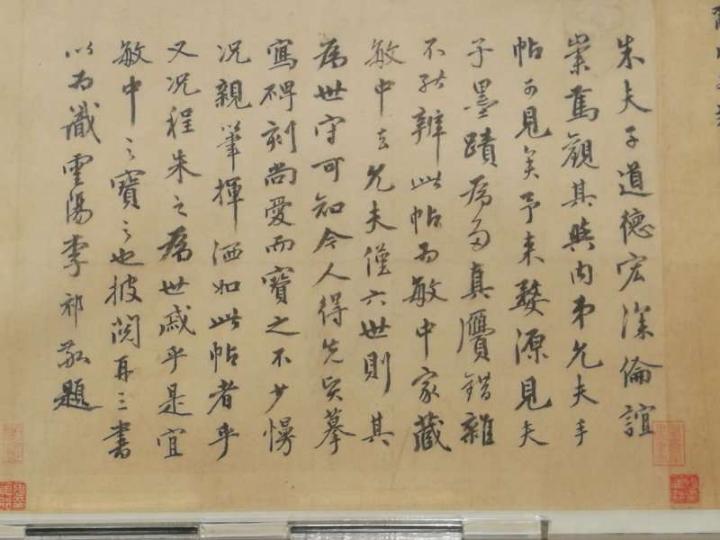 朱夫子道德宏深倫誼
崇篤觀其與內弟允夫手
帖可見矣予来婺源見夫
子墨蹟居多真贗錯雜
不能辨此帖為敏中家藏
敏中去允夫僅六世則其
為世守可知今人得先賢摹
寫碑刻尚愛而寶之不少慢
况親筆揮洒如此帖者乎
又况程朱之為世戚乎是宜
敏中之寶之也披閱再三書
以為識雲陽李祁敬題